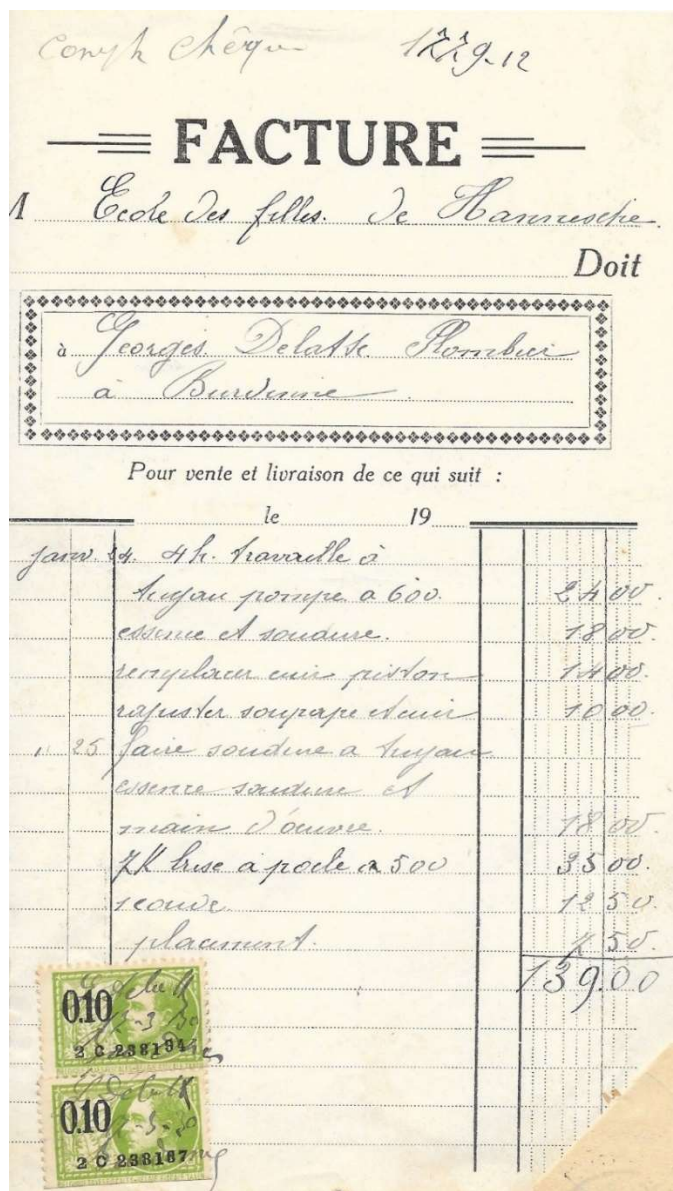 chèque
FACTURE
M Ecole des filles. de Hannesche.
Doit
à Georges Delatte Plombier
à Burdinne.
Pour vente et livraison de ce qui suit :
le 19
janv. 24. 4h. travaille à
tuyau pompe a 600. 24 00.
essence et soudure. 18 00.
remplacer cuir piston 14 00.
rajuster soupape et cuir 10 00.
" 25 faire soudure a tuyau
essence soudure et
main d'œuvre. 18 00.
7K buse a poele a 500 35 00.
1 coude. 12 50.
placement. 7 50.
139.00
0.10
2 C 238194
0.10
2 C 238187